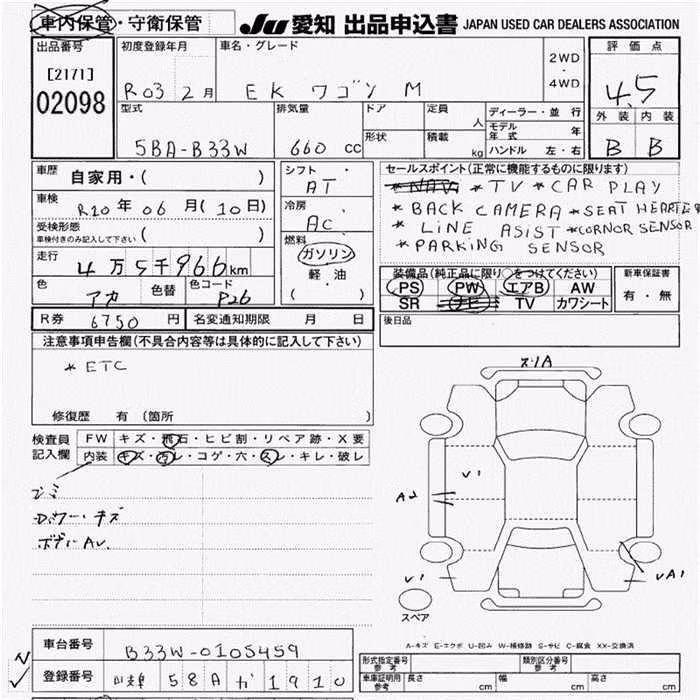 車内保管・守衛保管
JU 愛知 出品申込書 JAPAN USED CAR DEALERS ASSOCIATION
出品番号
[2171]
02098
初度登録年月
R03 2月
車名・グレード
EK ワゴン M
2WD
・
4WD
評価点
4.5
外装 内装
B B
型式
5BA-B33W
排気量
660 cc
ドア
形状
定員
人
積載
kg
ディーラー・並行
モデル年式 年
ハンドル 左・右
車歴
自家用・( )
車検
R10年06月(10日)
受検形態
車検付きのみ記入して下さい ( )
走行
4万5千966km
色
アカ
色替
色コード
P26
シフト
AT
冷房
AC
燃料
ガソリン
軽油
( )
セールスポイント(正常に機能するものに限ります)
*NAVI *TV *CAR PLAY
*BACK CAMERA *SEAT HEARTER
*LINE ASIST *CORNOR SENSOR
*PARKING SENSOR
装備品(純正品に限り○をつけてください)
PS PW エアB AW
SR ナビ TV カワシート
新車保証書
有・無
R券 6750 円
名変通知期限 月 日
後日品
注意事項申告欄(不具合内容等は具体的に記入して下さい)
*ETC
修復歴 有(箇所 )
検査員
記入欄
FW キズ・飛石・ヒビ割・リペア跡・X要
内装 キズ・汚レ・コゲ・穴・スレ・キレ・破レ
ゴミ
D.ワー・キズ
ボディAU.
ズリA
V1
A2
V1
VA1
スペア
A-キズ E-エクボ U-凹み W-補修跡 S-サビ C-腐食 XX-交換済
車台番号
B33W-0105459
登録番号
580 1910
型式指定番号
参考
類別区分番号
参考
車庫証明用
参考
長さ cm
幅 cm
高さ cm